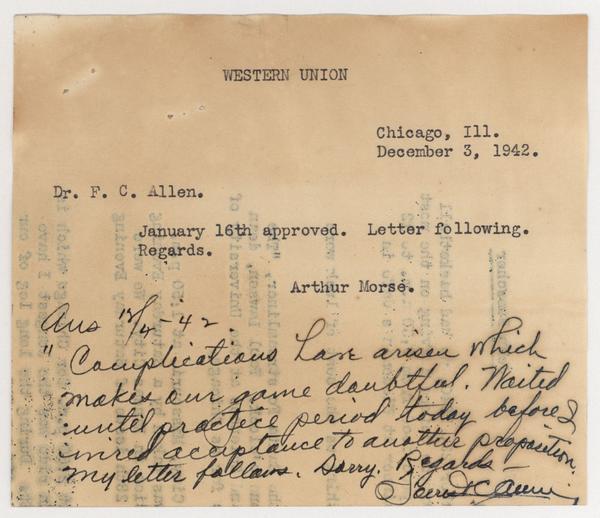 WESTERN UNION
Chicago, Ill.
December 3, 1942.
Dr. F. C. Allen.
January 16th approved. Letter following.
Regards.
Arthur Morse.
Ans 12/4-42.
"Complications have arisen which
makes our game doubtful. Waited
until practice period today before I
wired acceptance to another proposition.
My letter follows. Sorry. Regards-